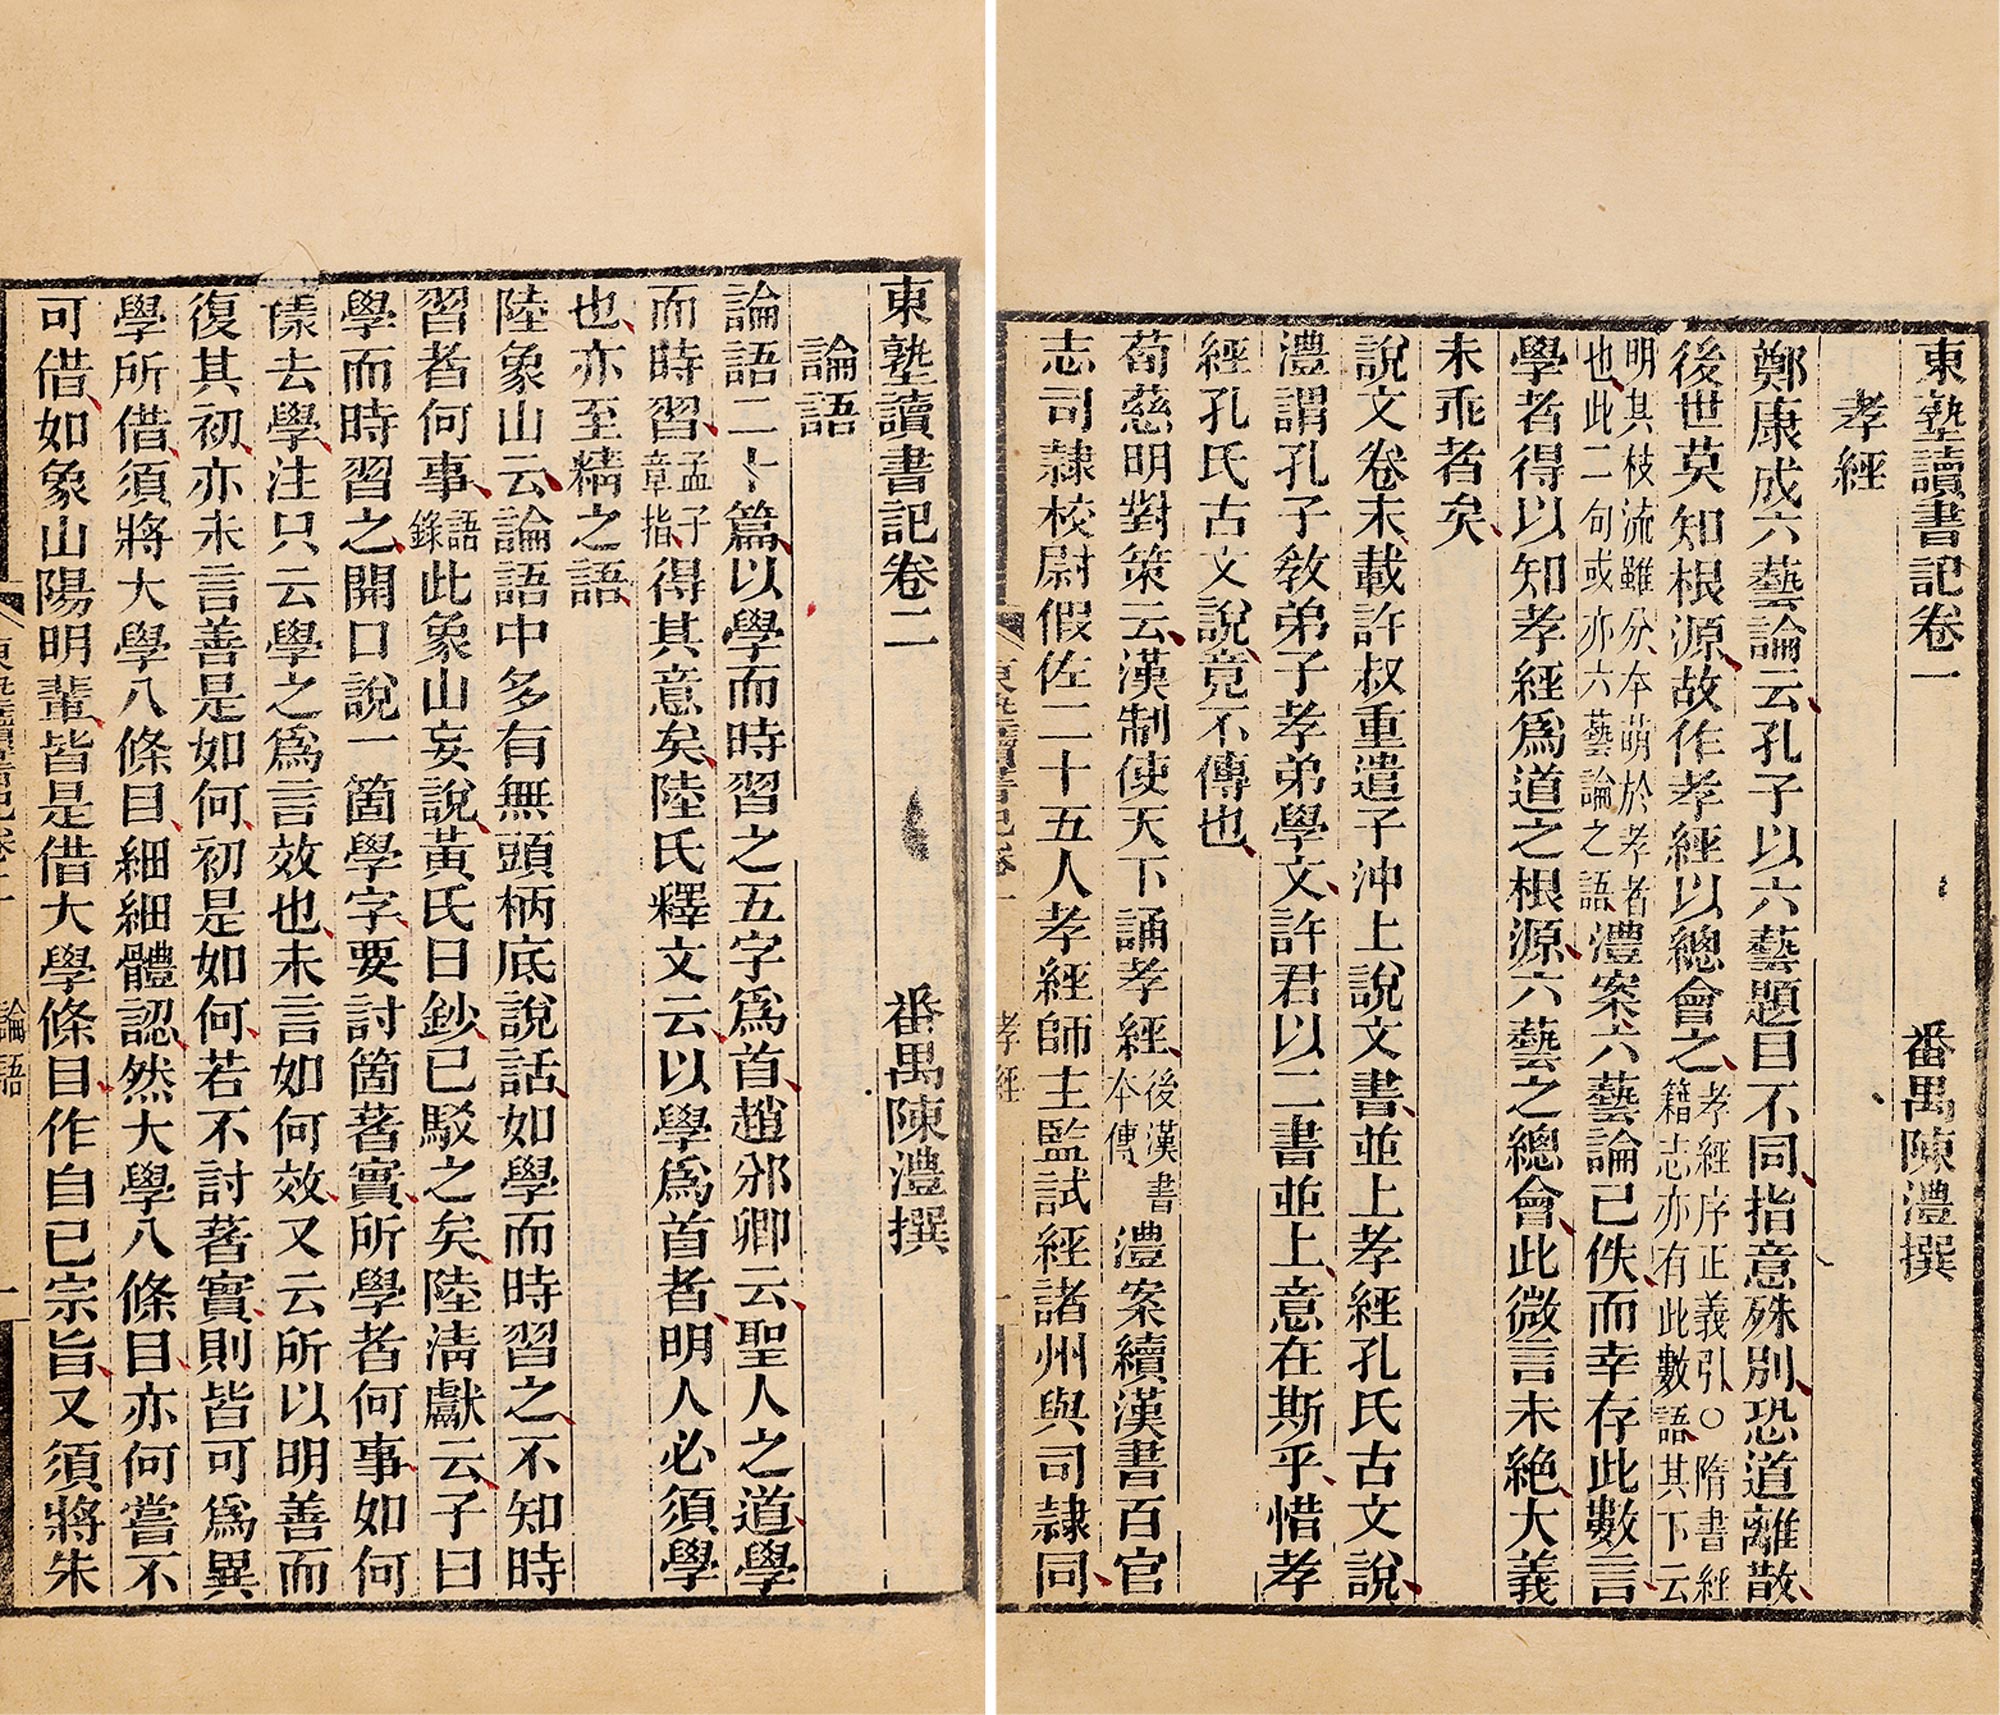 東塾讀書記卷一　番禺陳澧撰
孝經
鄭康成六藝論云孔子以六藝題目不同指意殊別恐道離散
後世莫知根源故作孝經以總會之孝經序正義引○隋書經籍志亦有此數語其下云
明其枝流雖分本萌於孝者也此二句或亦六藝論之語澧案六藝論己佚而幸存此數言
學者得以知孝經爲道之根源六藝之總會此微言未絶大義
未乖者矣
說文卷末載許叔重遣子沖上說文書並上孝經孔氏古文說
澧謂孔子敎弟子孝弟學文許君以二書並上意在斯乎惜孝
經孔氏古文說竟不傳也
荀慈明對策云漢制使天下誦孝經後漢書本傳澧案續漢書百官
志司隷校尉假佐二十五人孝經師主監試經諸州與司隷同
東塾讀書記卷一
孝經
一
東塾讀書記卷二　番禺陳澧撰
論語
論語二十篇以學而時習之五字爲首趙邠卿云聖人之道學
而時習孟子章指得其意矣陸氏釋文云以學爲首者明人必須學
也亦至精之語
陸象山云論語中多有無頭柄底說話如學而時習之不知時
習者何事語錄此象山妄說黃氏日鈔已駁之矣陸淸獻云子曰
學而時習之開口說一箇學字要討箇著實所學者何事如何
㨾去學注只云學之爲言效也未言如何效又云所以明善而
復其初亦未言善是如何初是如何若不討著實則皆可爲異
學所借須將大學八條目細細體認然大學八條目亦何嘗不
可借如象山陽明輩皆是借大學條目作自已宗旨又須將朱
東塾讀書記卷二
論語
一